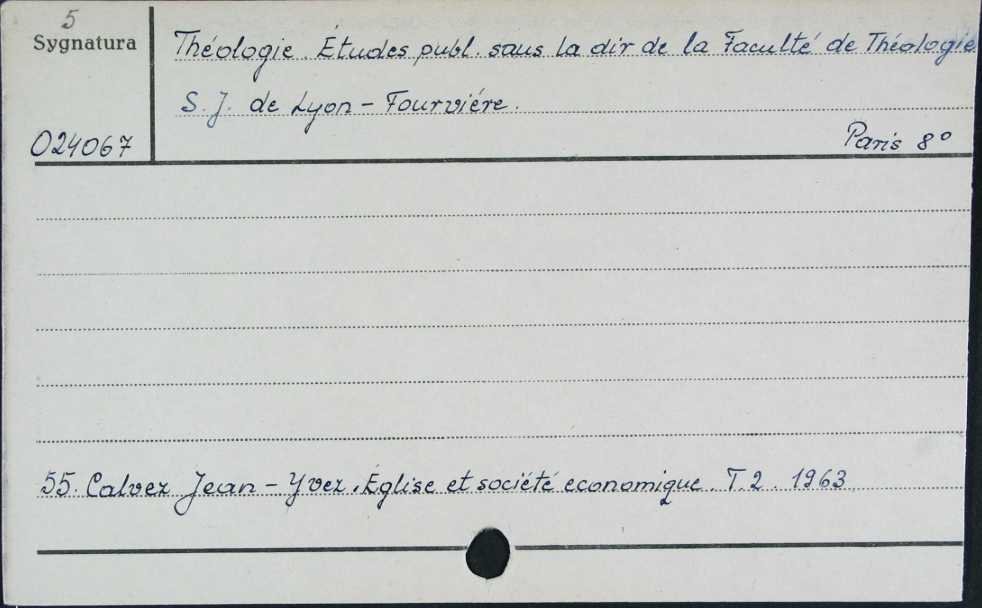 5
Sygnatura
Théologie. Etudes publ. saus la dir de la Faculté de Théologie
S. J. de Lyon - Fourviére.
024067
Paris 8°
55. Calvez Jean - Yvez. Église et société economique. T. 2. 1963